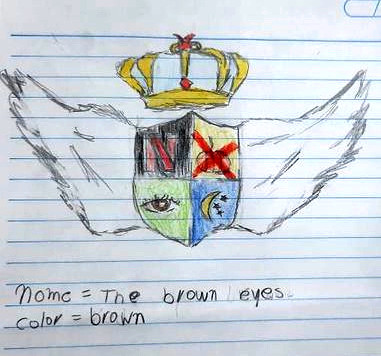 N
Nome = The brown eyes.
color = brown